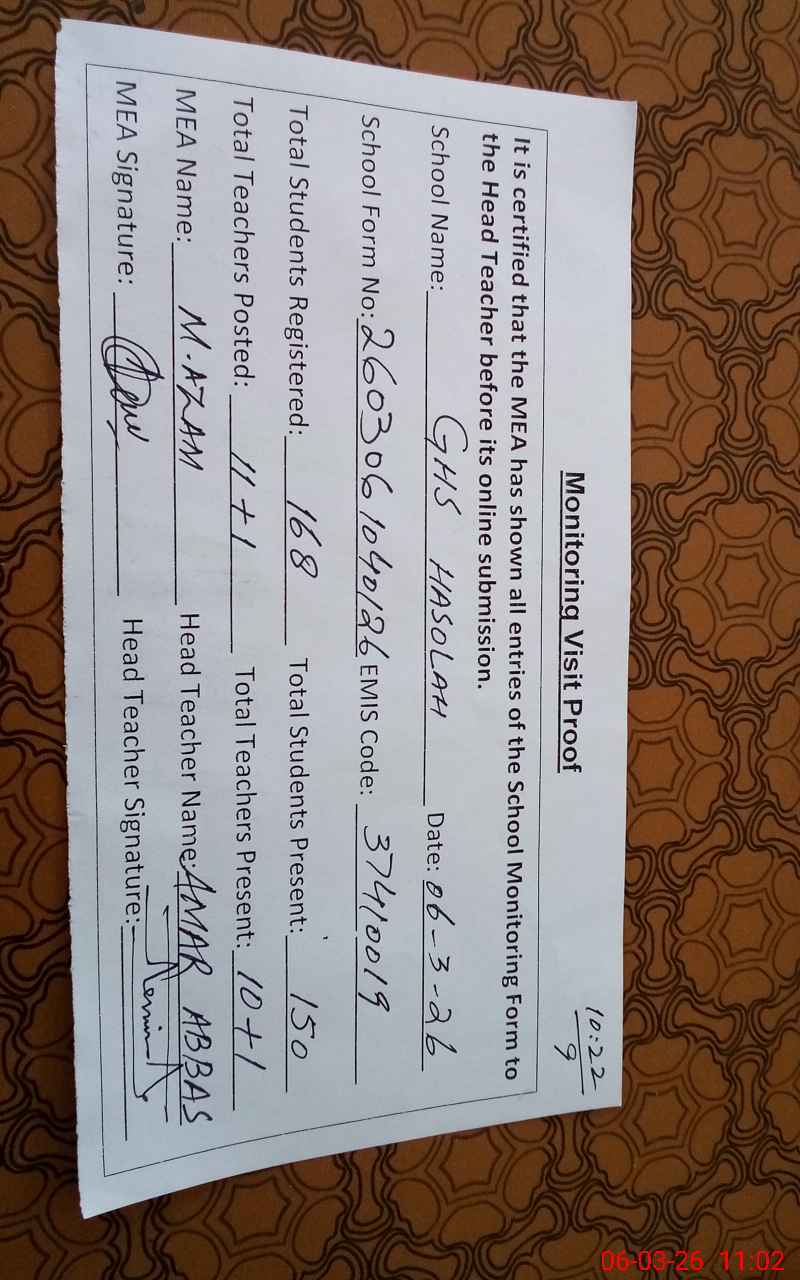 10:22
9
Monitoring Visit Proof
It is certified that the MEA has shown all entries of the School Monitoring Form to
the Head Teacher before its online submission.
School Name: GHS HASOLAH Date: 06-3-26
School Form No: 2603061040126 EMIS Code: 37410019
Total Students Registered: 168 Total Students Present: 150
Total Teachers Posted: 11+1 Total Teachers Present: 10+1
MEA Name: M.AZAM Head Teacher Name: AMAR ABBAS
MEA Signature: Head Teacher Signature:
06-03-26 11:02